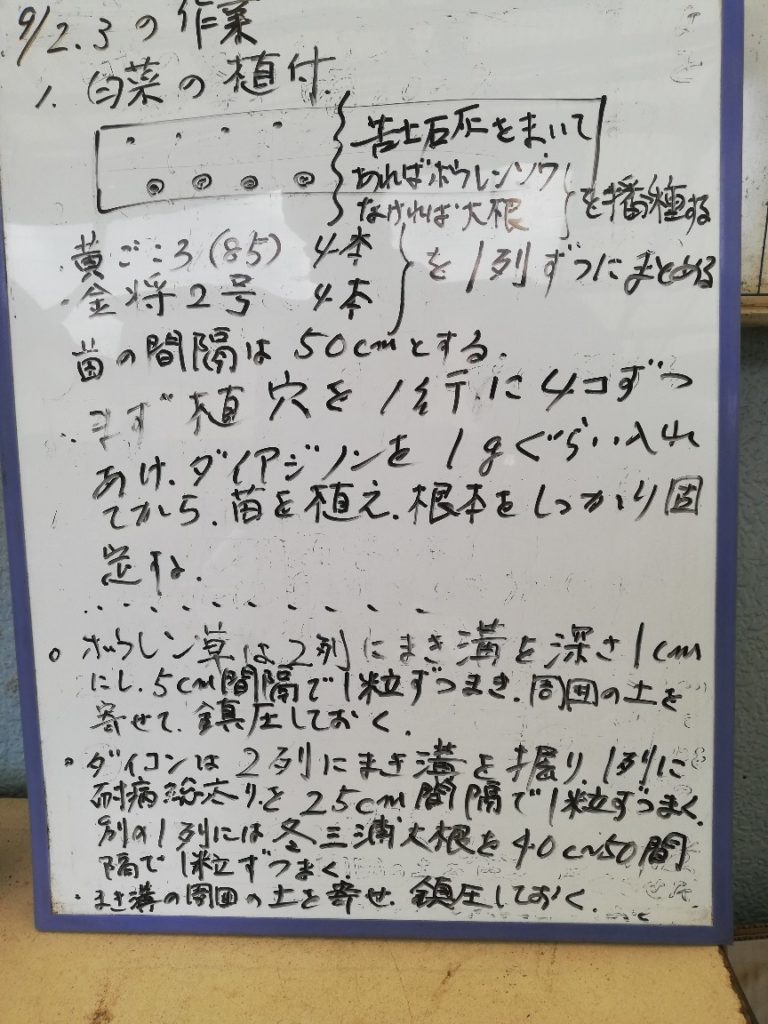 9/2.3の作業
1. 白菜の植付.
苦土石灰をまいて
あればホウレンソウ
なければ大根
を播種する
黄ごころ(85) 4本
・金将2号 4本
を1列ずつにまとめる
苗の間隔は50cmとする.
まず植穴を1条に4コずつ
あけ、ダイアジノンを1gぐらい入れ
てから、苗を植え、根本をしっかり固
定する.
○ ホウレン草は2列にまき溝を深さ1cm
にし、5cm間隔で1粒ずつまき、周囲の土を
寄せて、鎮圧しておく.
○ ダイコンは2列にまき溝を掘り、1列に
耐病総太りを25cm間隔で1粒ずつまく.
別の1列には冬三浦大根を40c~50間
隔で1粒ずつまく.
・まき溝の周囲の土を寄せ、鎮圧しておく.